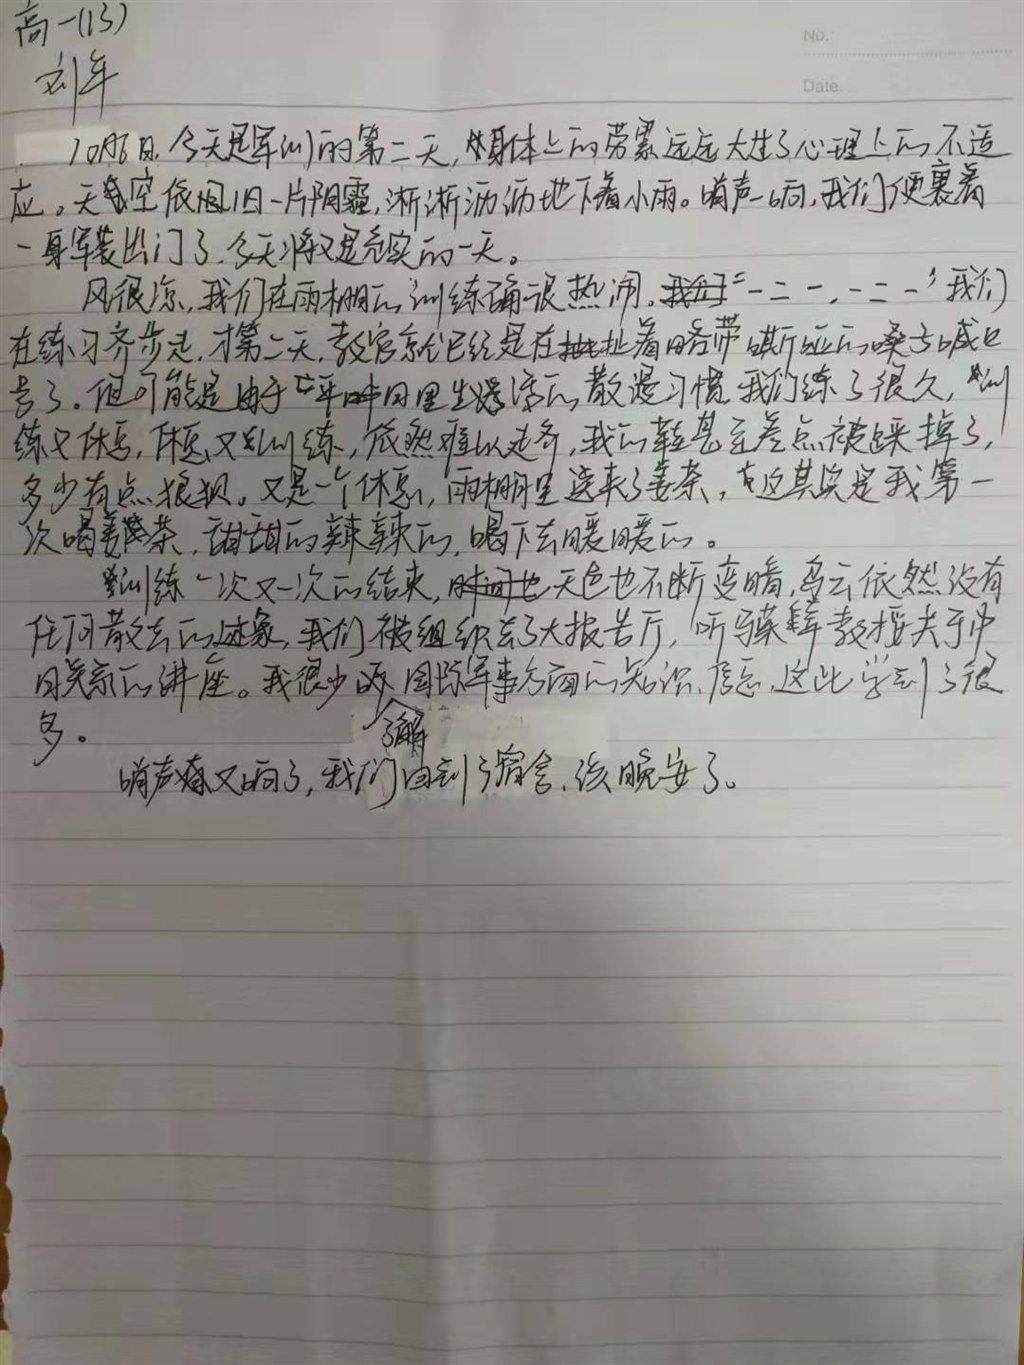 高一(13)
No.
刘年
Date.
10月6日,今天是军训的第二天,身体上的劳累远远大过了心理上的不适
应。天空依旧一片阴霾,淅淅沥沥地下着小雨。哨声一响,我们便裹着
一身军装出门了,今天将又是充实的一天。
风很凉,我们在雨棚的训练确很热闹。“一二一,一二一”我们
在练习齐步走,才第二天,教官就已经是在扯着略带嘶哑的嗓子喊口
号了。但可能是由于平时日里生活的散漫习惯,我们练了很久,训
练又休息,休息又训练,依然难以走齐,我的鞋甚至差点被踩掉了,
多少有点狼狈。又是一个休息,雨棚里送来了姜茶,这其实是我第一
次喝姜茶,甜甜的辣辣的,喝下去暖暖的。
训练一次又一次的结束,天色也不断变暗,乌云依然没有
任何散去的迹象,我们被组织去了大报告厅,听教授关于中
日关系的讲座。我很少了解国际军事方面的知识、信息,这此学到了很
多。
哨声又响了,我们回到了宿舍,该晚安了。